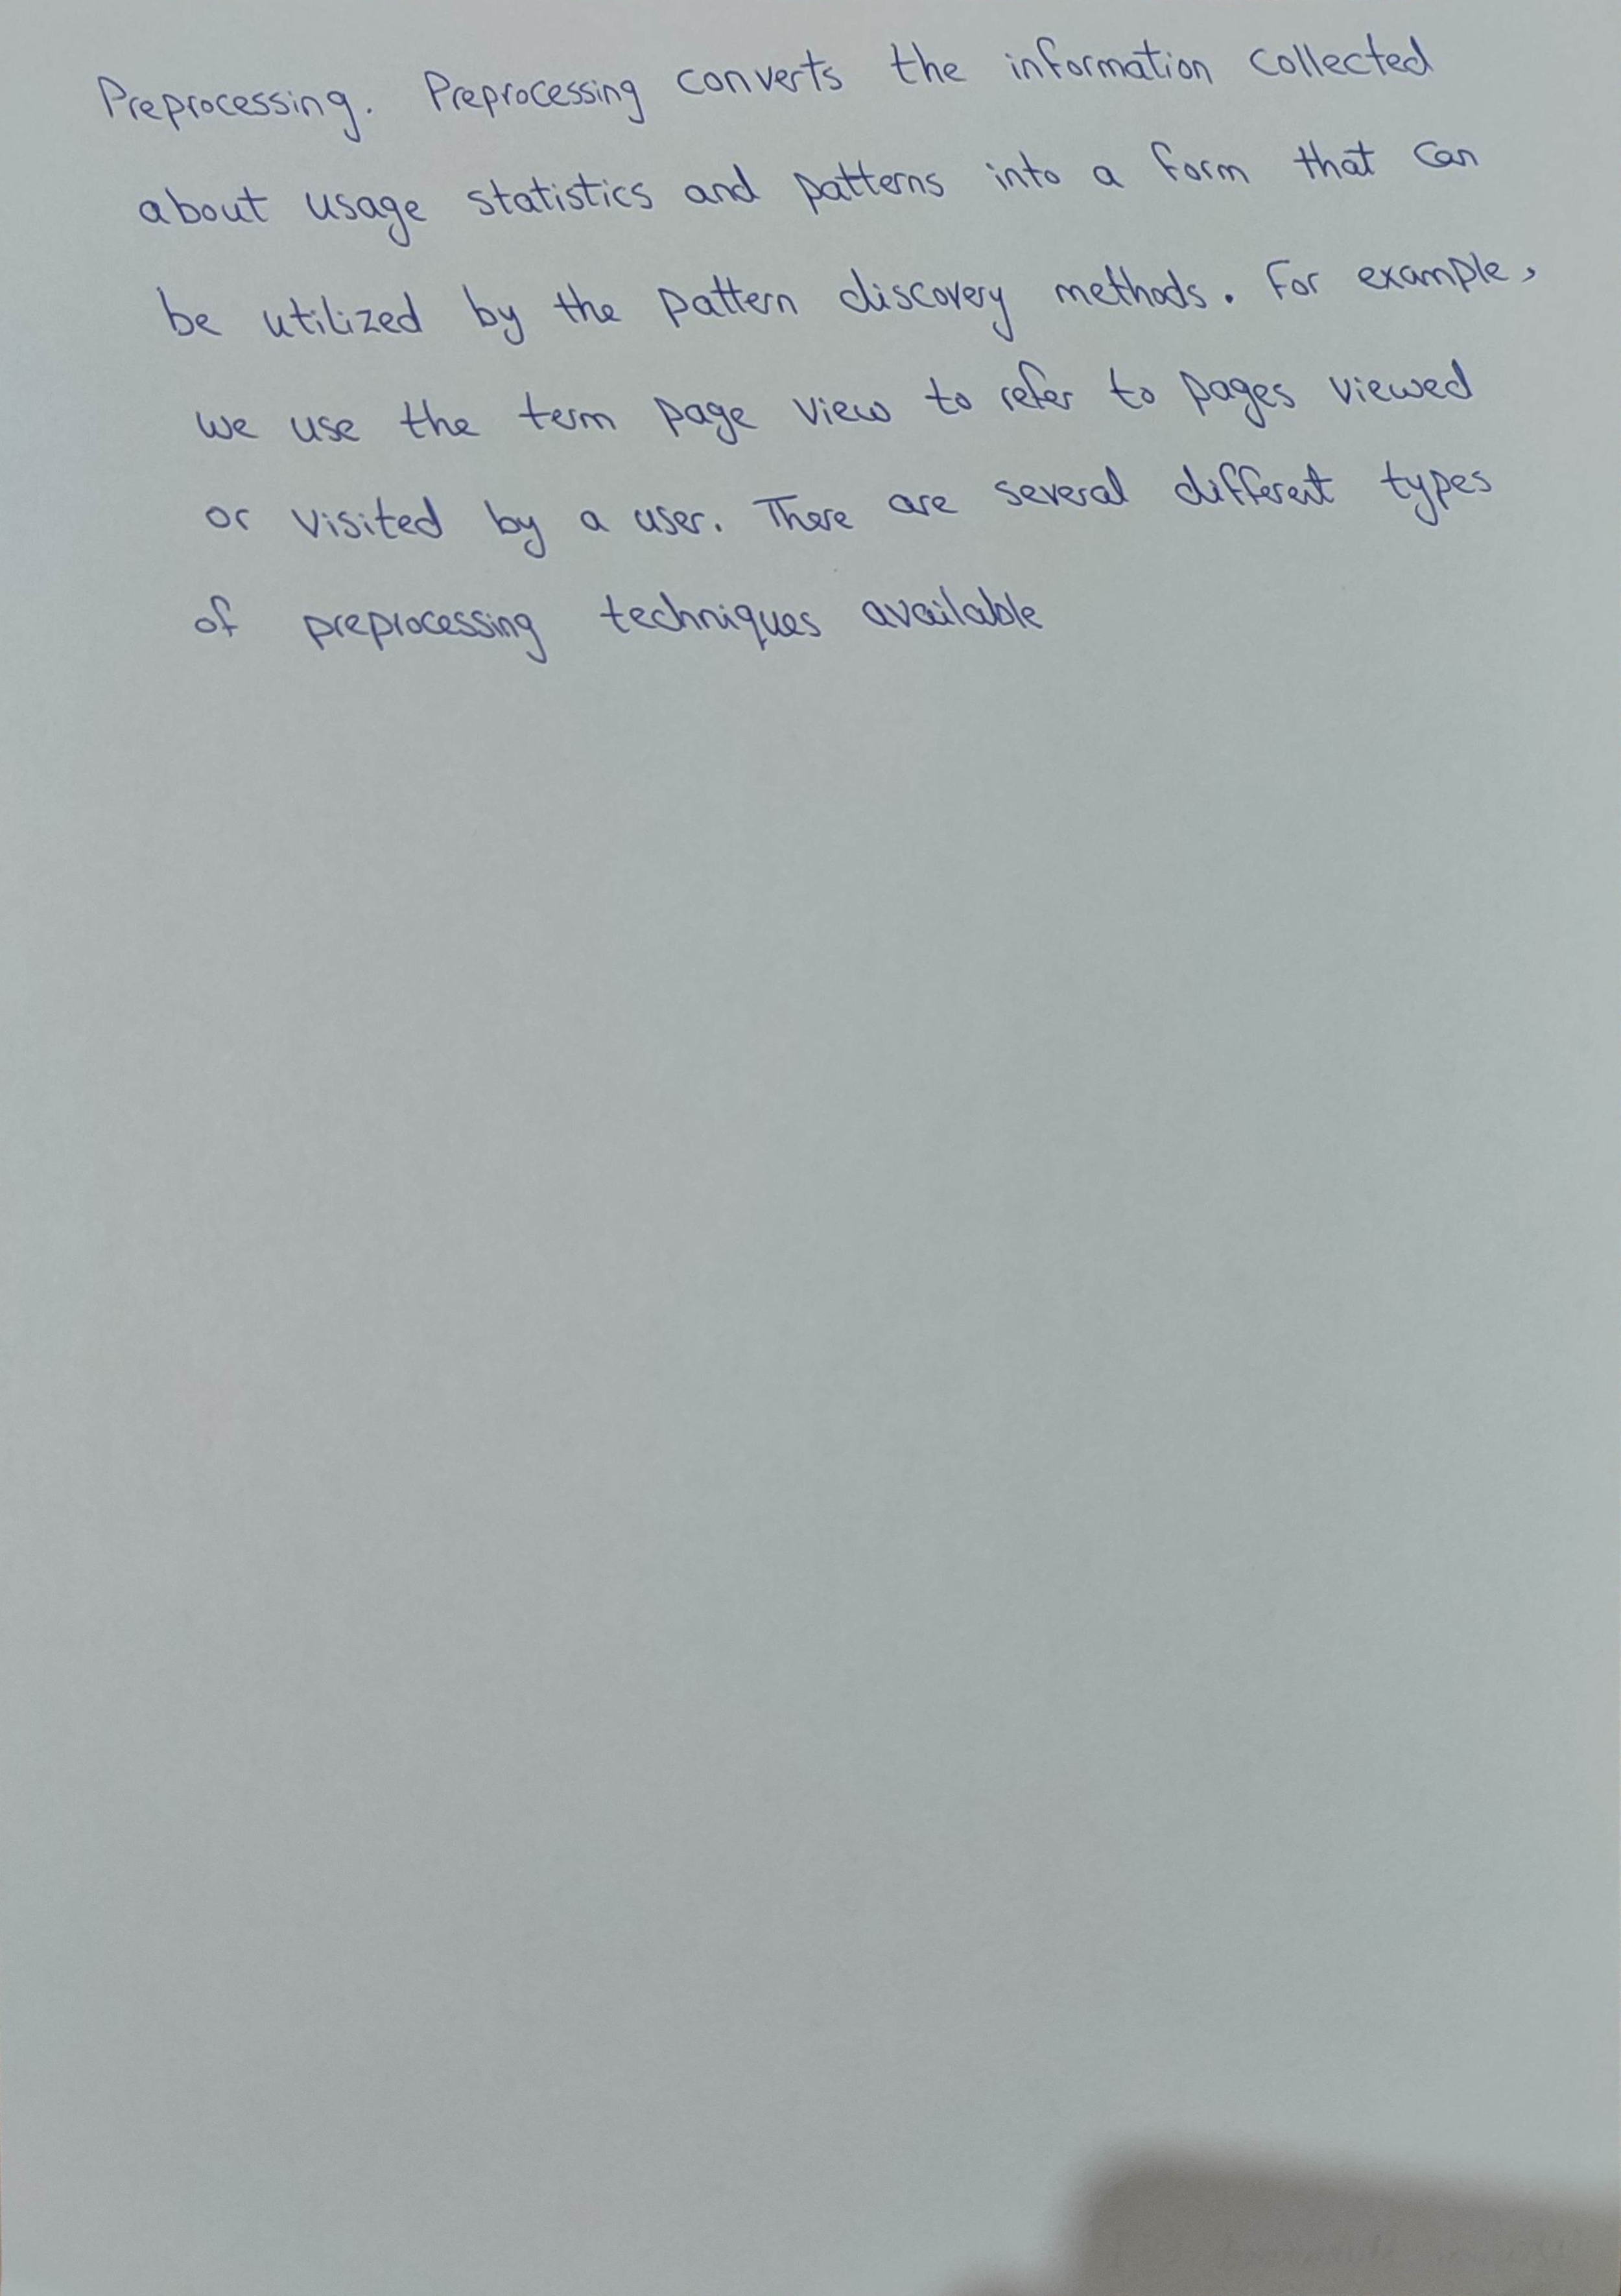 Preprocessing. Preprocessing converts the information collected
about usage statistics and patterns into a form that can
be utilized by the pattern discovery methods. For example,
we use the term page view to refer to pages viewed
or visited by a user. There are several different types
of preprocessing techniques available